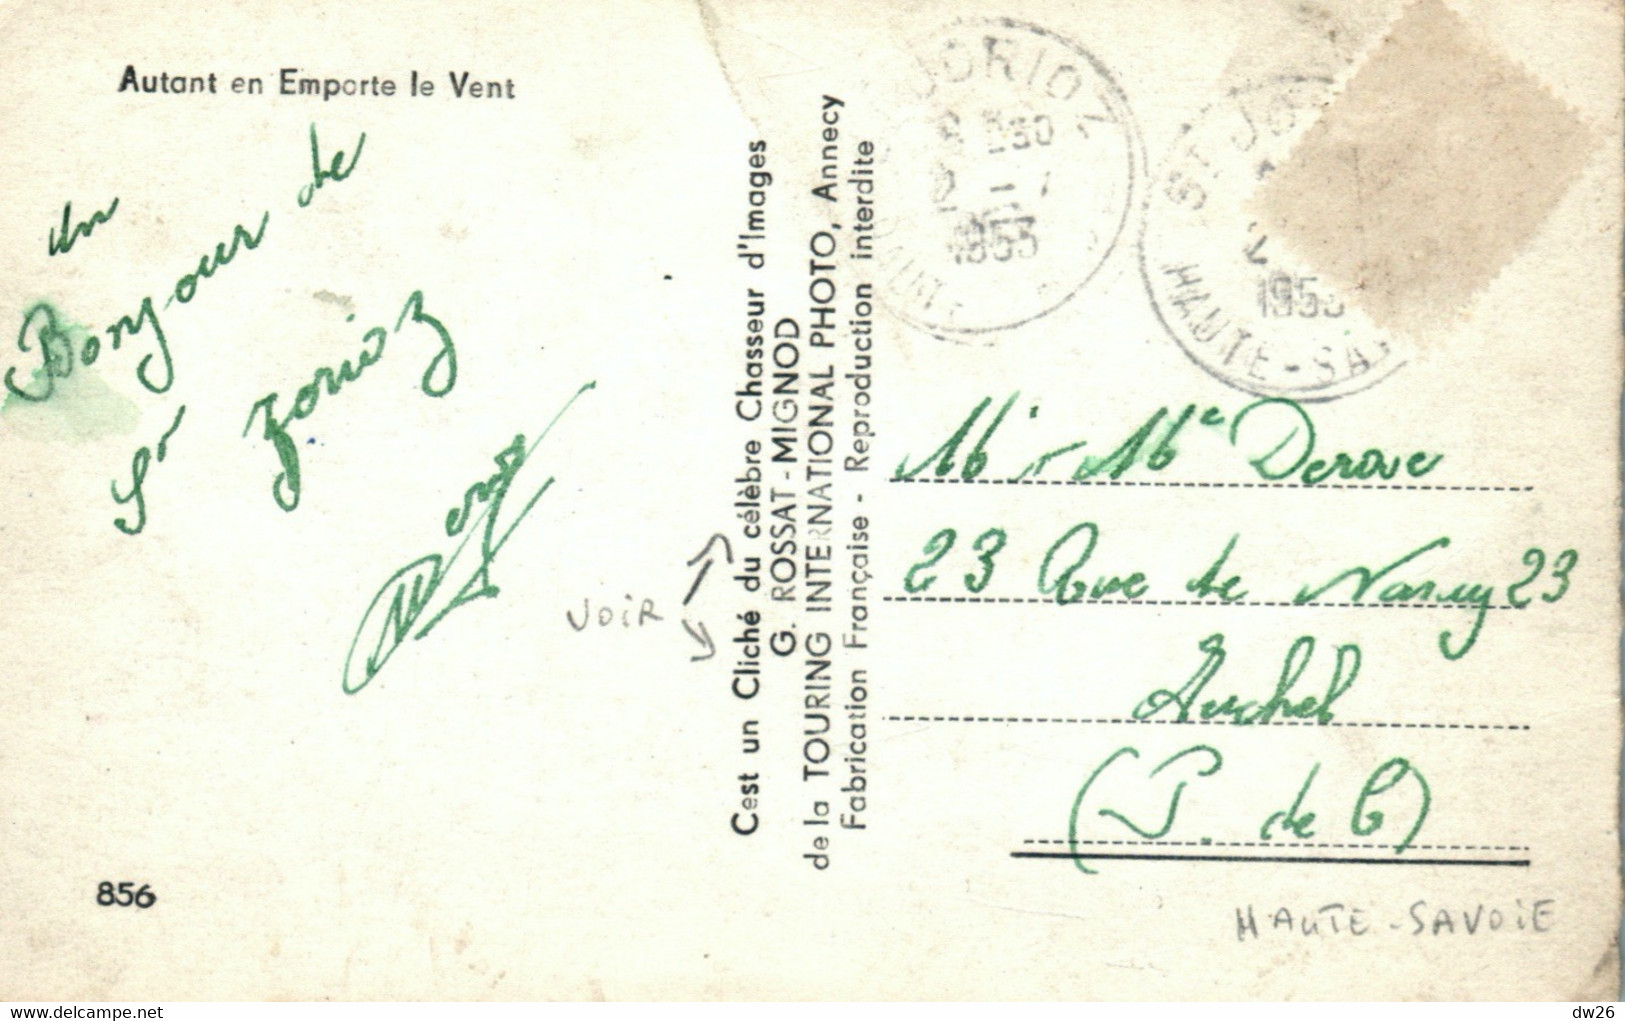 Autant en Emporte le Vent
un
Bonjour de
St Jorioz
856
VOIR
C'est un Cliché du célèbre Chasseur d'Images
G. ROSSAT-MIGNOD
de la TOURING INTERNATIONAL PHOTO, Annecy
Fabrication Française - Reproduction interdite
JORIOZ
1953
ST JO
1953
HAUTE-SA
Mr Me
23 Rue de 23
Auchel
(P. de C)
HAUTE-SAVOIE
delcampe.net
dw26